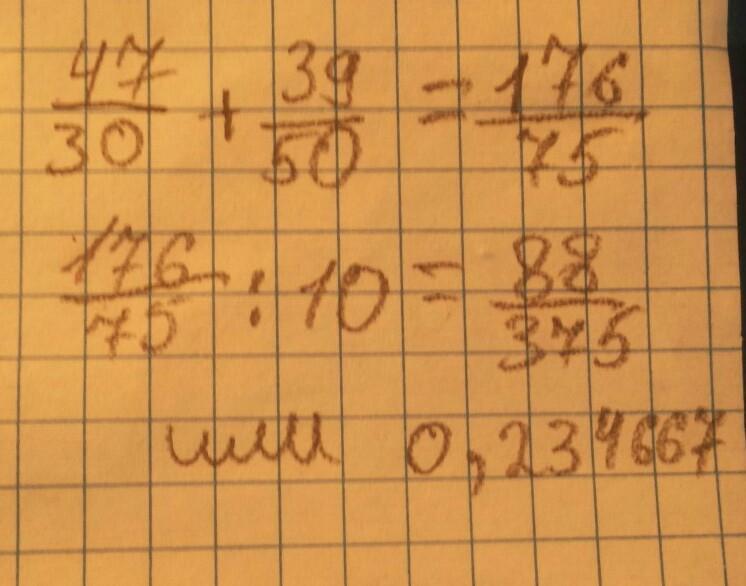 47/30 + 39/50 = 176/75
176/75 : 10 = 88/375
или 0,234667